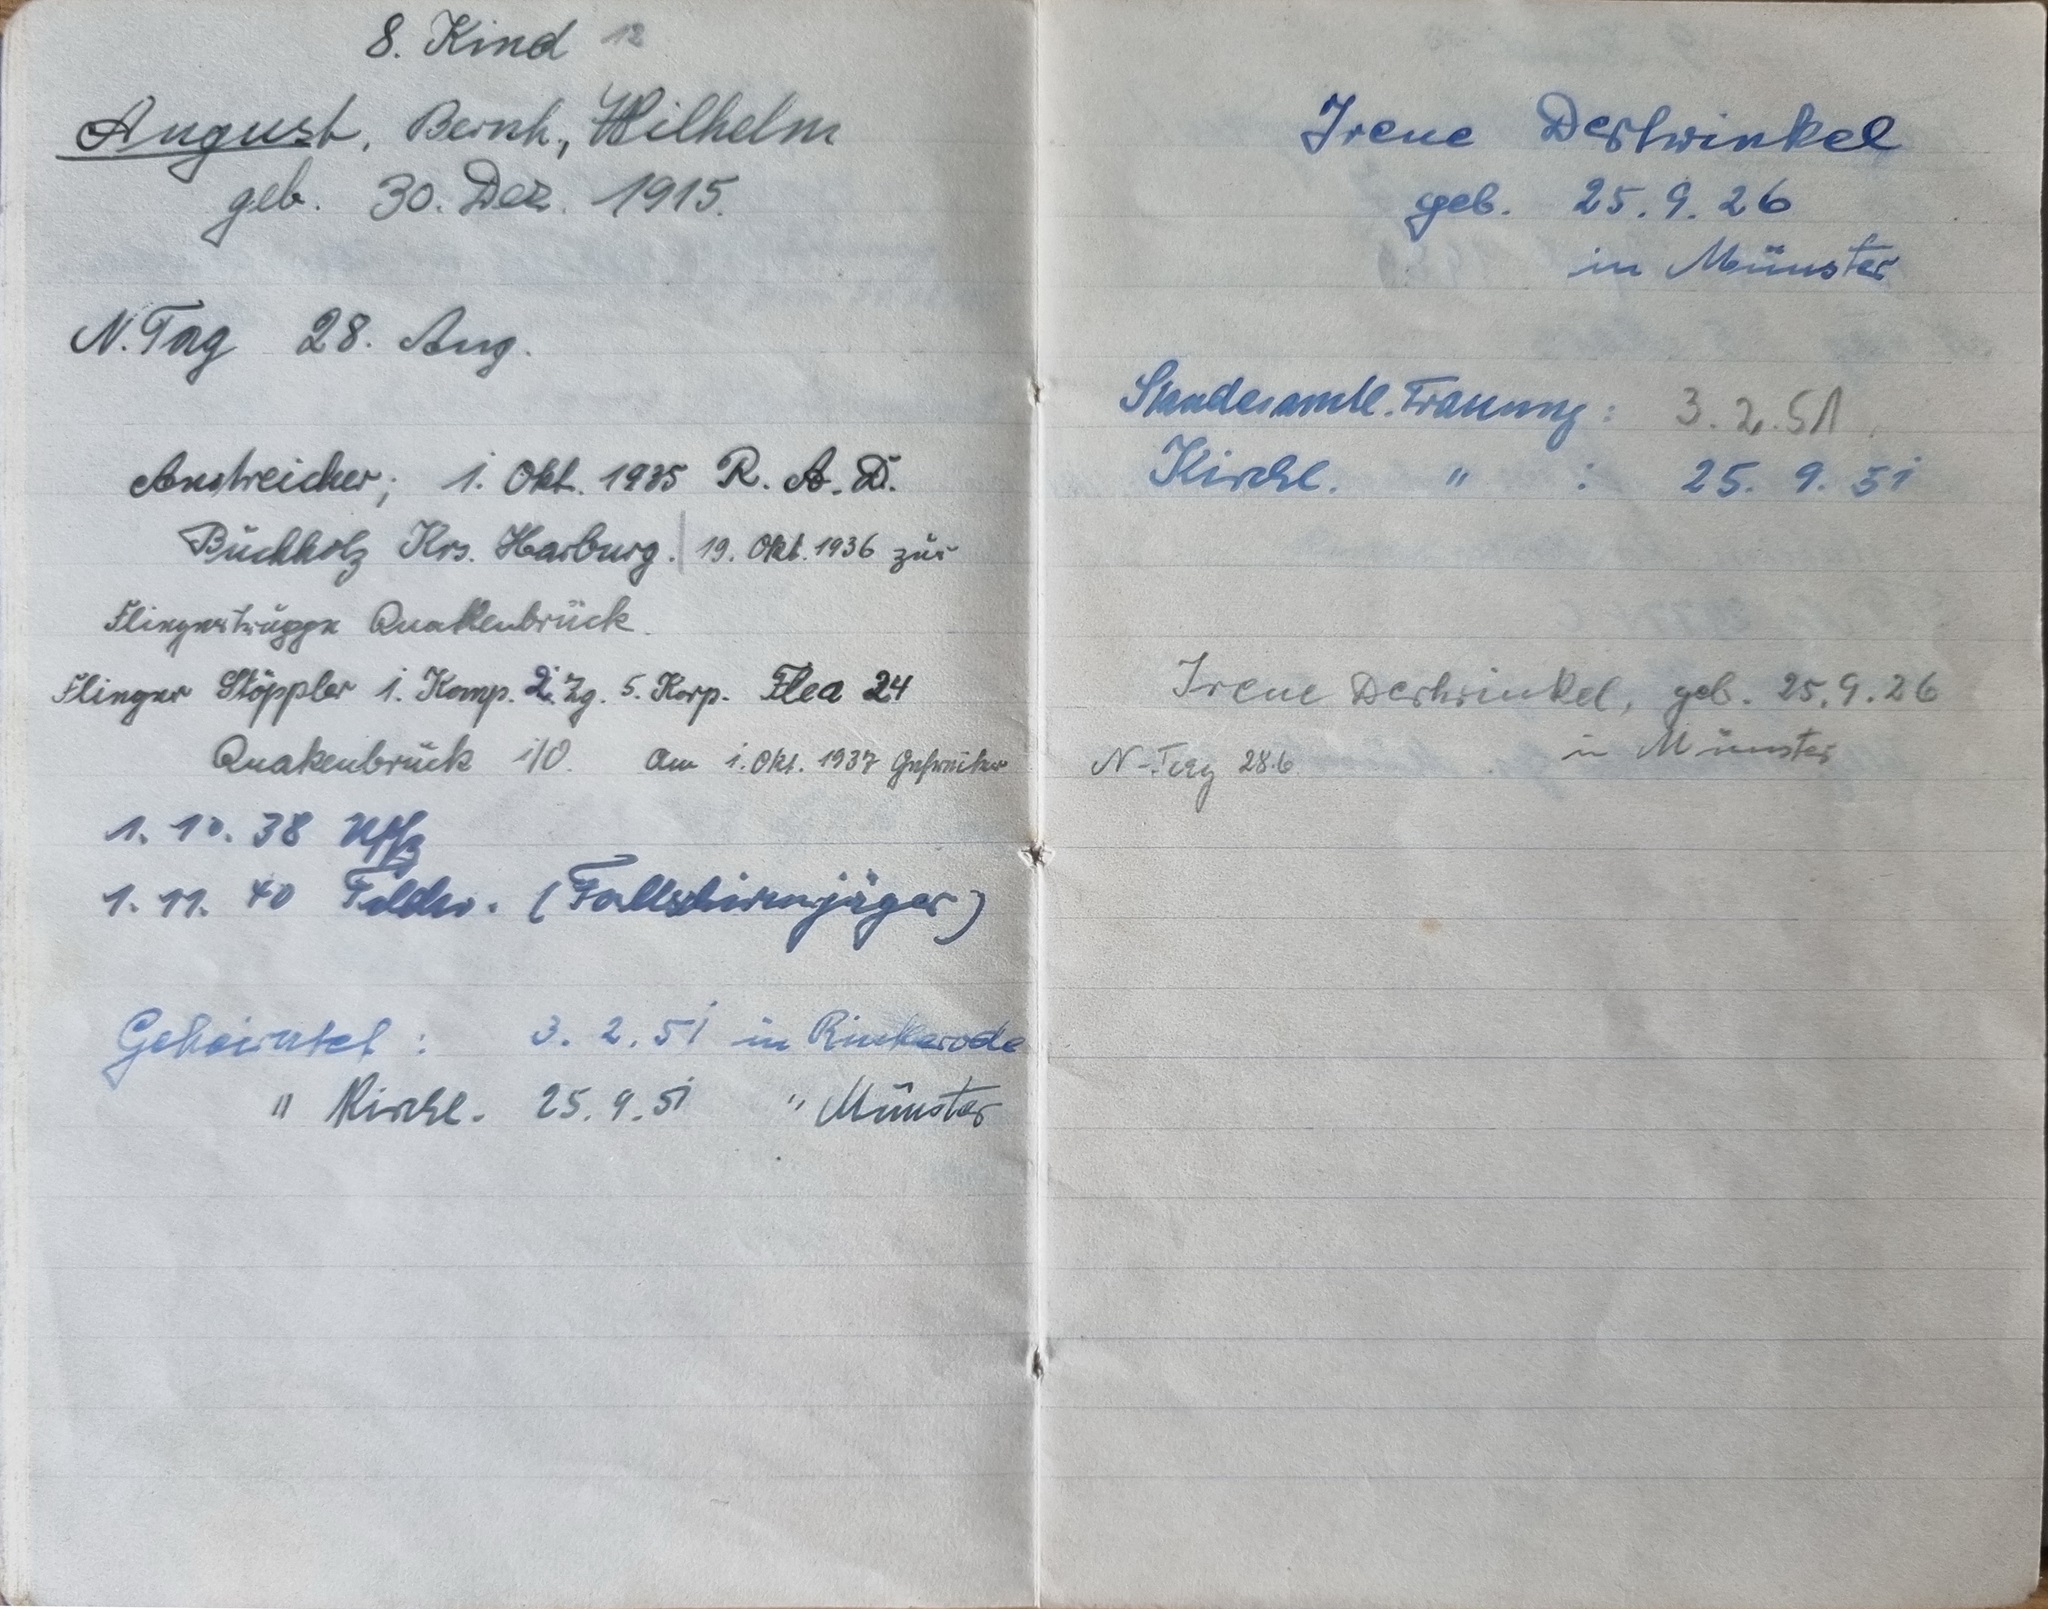 8. Kind 12
August, Bernh., Wilhelm
geb. 30. Dez. 1915.
N. Tag 28. Aug.
Anstreicher; 1. Okt. 1935 R. A. D.
Buchholz Krs. Harburg. | 19. Okt. 1936 zur
Fliegertruppe Quakenbrück.
Flieger Stöppler 1. Komp. 2. Zg. 5. Korp. Flea 24
Quakenbrück i/O. Am 1. Okt. 1937 Gefreiter
1. 10. 38 Uffz
1. 11. 40 Feldw. (Fallschirmjäger)
Geheiratet : 3. 2. 51 in Rinkerode
" Kirchl. 25. 9. 51 " Münster
Irene Dertwinkel
geb. 25. 9. 26
in Münster
Standesamtl. Trauung : 3. 2. 51.
Kirchl. " : 25. 9. 51
Irene Dertwinkel, geb. 25. 9. 26
in Münster
N-Tag 28.6